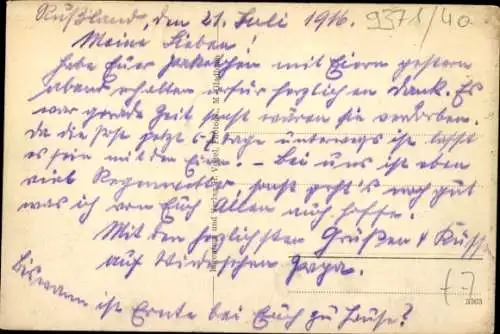 Rußland, den 21. Juli 1916. 9371/40
Meine Lieben!
habe Euer Packetchen mit Eiern gestern
abend erhalten wofür herzlichen Dank. Es
war gerade Zeit sonst wären sie verdorben.
Da die Post jetzt 5-6 Tage unterwegs ist laßt
es sein mit den Eiern. – Bei uns ist eben
viel Regenwetter, sonst geht's noch gut
was ich von Euch Allen auch hoffe.
Mit den herzlichsten Grüßen & Küsse
auf Wiedersehen Papa.
Bis wann ist Ernte bei Euch zu Hause?
f-7
3363